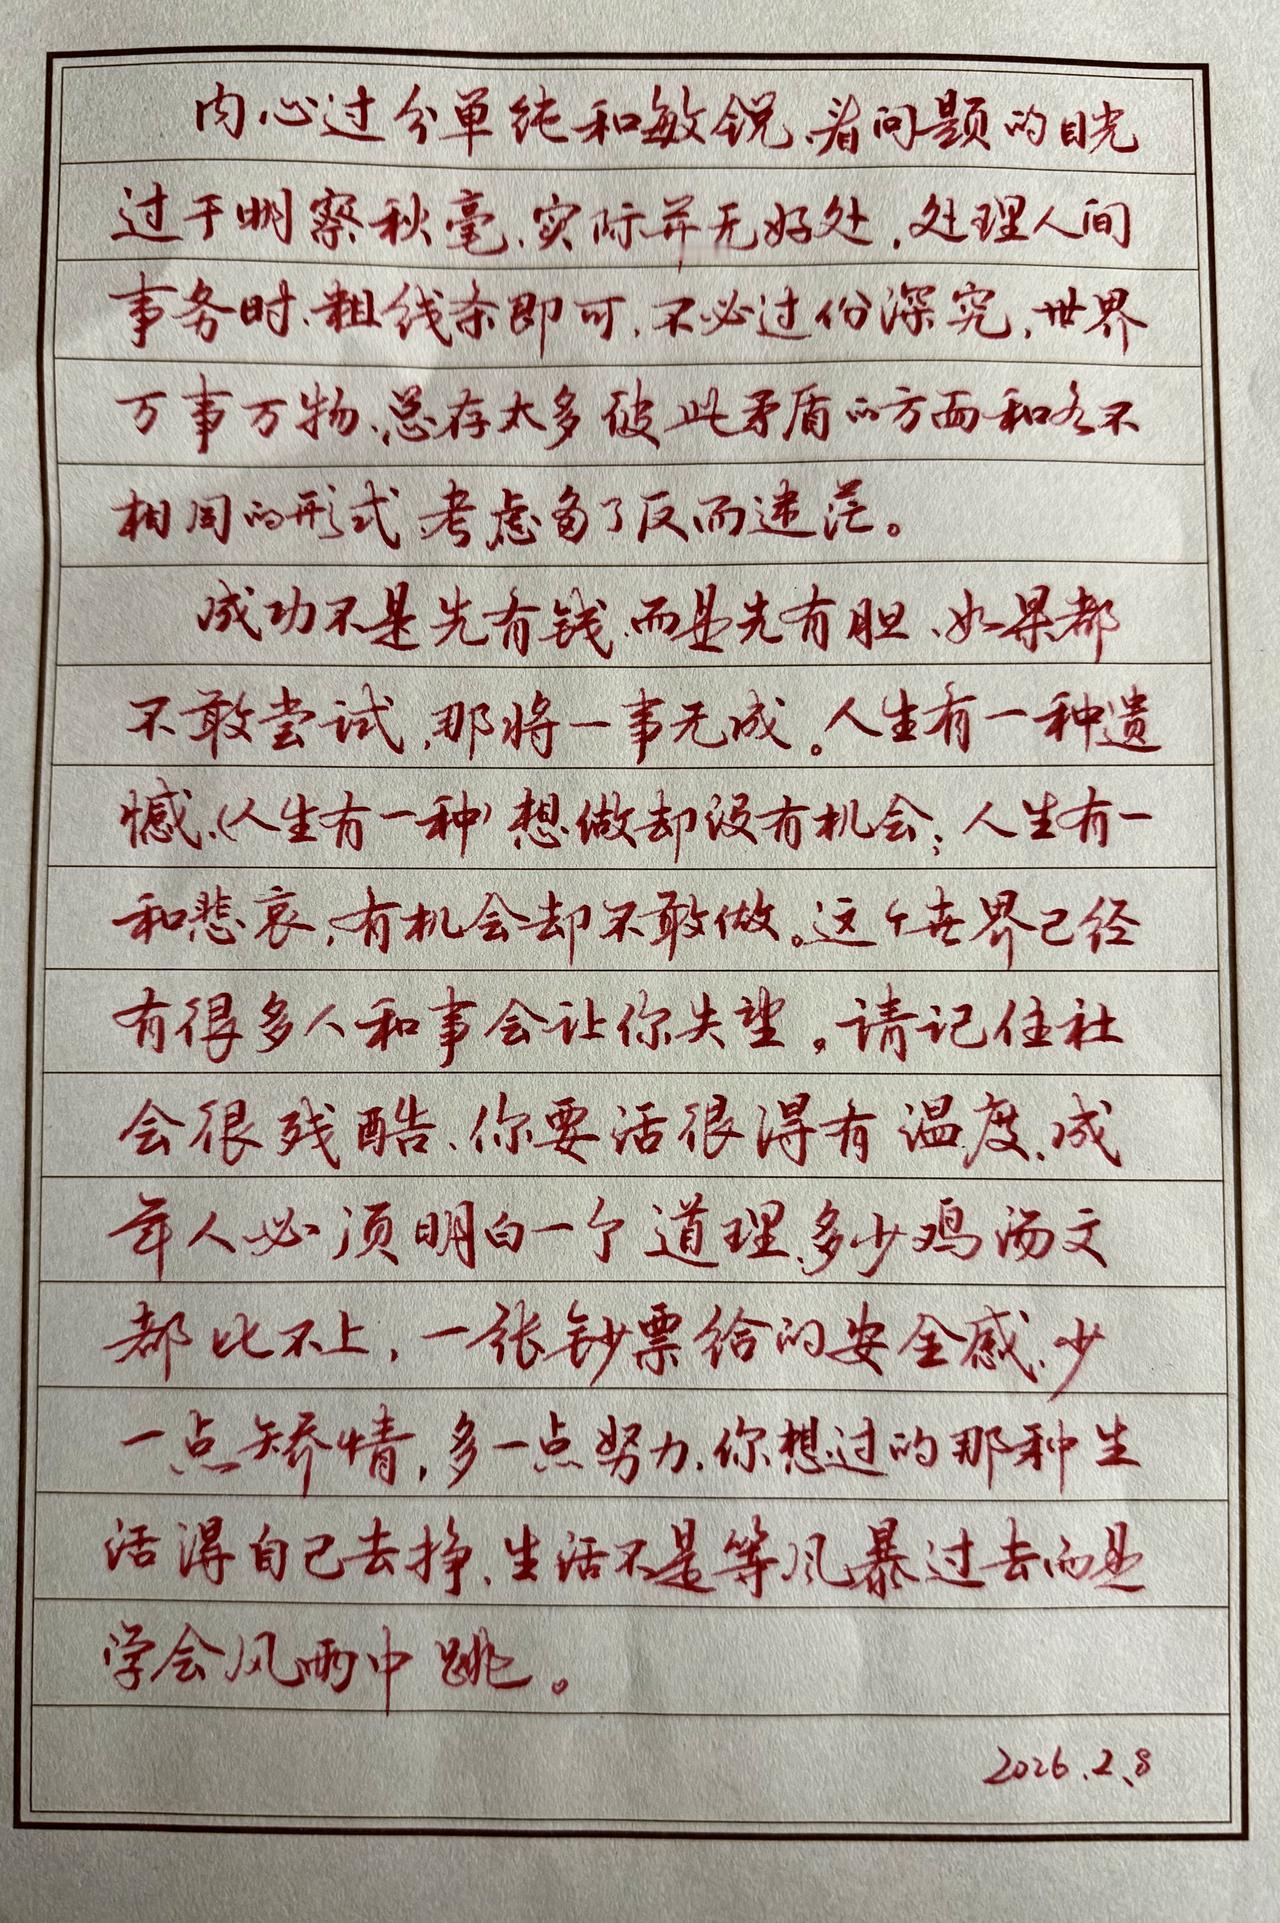 内心过分单纯和敏锐、看问题的目光
过于明察秋毫、实际并无好处，处理人间
事务时、粗线条即可，不必过份深究，世界
万事万物、总存太多彼此矛盾的方面和各不
相同的形式、考虑多了反而迷茫。
成功不是先有钱、而是先有胆、如果都
不敢尝试，那将一事无成。人生有一种遗
憾、(人生有一种)想做却没有机会；人生有一
种悲哀，有机会却不敢做。这个世界已经
有很多人和事会让你失望。请记住社
会很残酷、你要活很得有温度、成
年人必须明白一个道理、多少鸡汤文
都比不上，一张钞票给的安全感、少
一点矫情，多一点努力、你想过的那种生
活得自己去挣、生活不是等风暴过去而是
学会风雨中跳。
2026.2、8